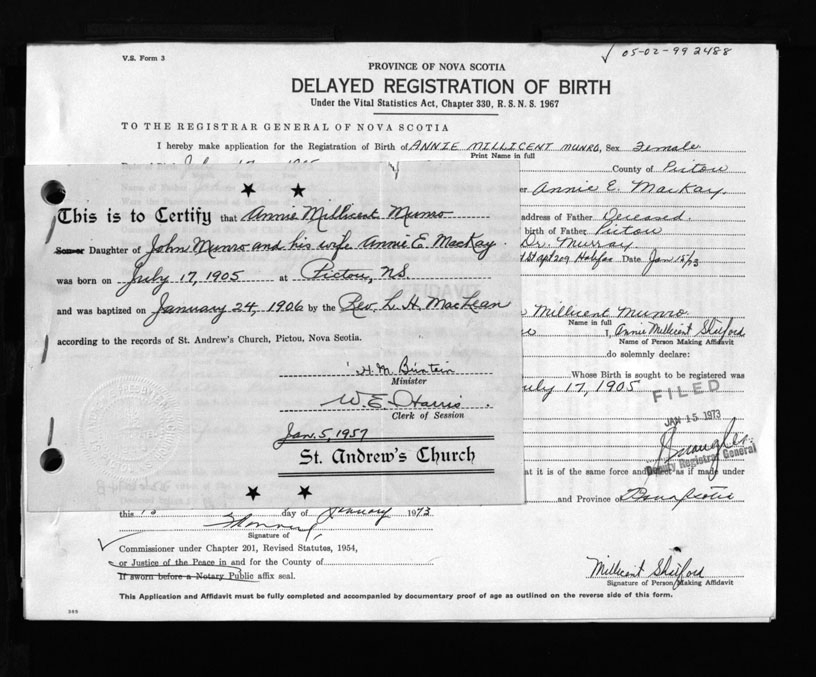 05-02-99 2488
V.S. Form 3
PROVINCE OF NOVA SCOTIA
DELAYED REGISTRATION OF BIRTH
Under the Vital Statistics Act, Chapter 330, R. S. N. S. 1967
TO THE REGISTRAR GENERAL OF NOVA SCOTIA
I hereby make application for the Registration of Birth of ANNIE MILLICENT MUNRO, Sex Female
Print Name in full
County of Pictou
er Annie E. MacKay.
address of Father Deceased.
birth of Father Pictou
Dr. Murray
St apt 209 Halifax Date Jan 15/73
Millicent Munro
Name in full
I, Annie Millicent
Name of Person Making Affidavit
do solemnly declare:
Whose Birth is sought to be registered was
July 17, 1905
FILED
JAN 15 1973
Deputy Registrar General
at it is of the same force and effect as if made under
and Province of
This is to Certify that Annie Millicent Munro
Son or Daughter of John Munro and his wife Annie E. MacKay.
was born on July 17, 1905 at Pictou, N.S.
and was baptized on January 24, 1906 by the Rev. L. H. MacLean
according to the records of St. Andrew's Church, Pictou, Nova Scotia.
H. M.
Minister
W. E. Harris.
Clerk of Session
Jan. 5, 1957
St. Andrew's Church
this day of January 1973
Signature of
Commissioner under Chapter 201, Revised Statutes, 1954,
or Justice of the Peace in and for the County of
If sworn before a Notary Public affix seal.
Millicent
Signature of Person Making Affidavit
This Application and Affidavit must be fully completed and accompanied by documentary proof of age as outlined on the reverse side of this form.